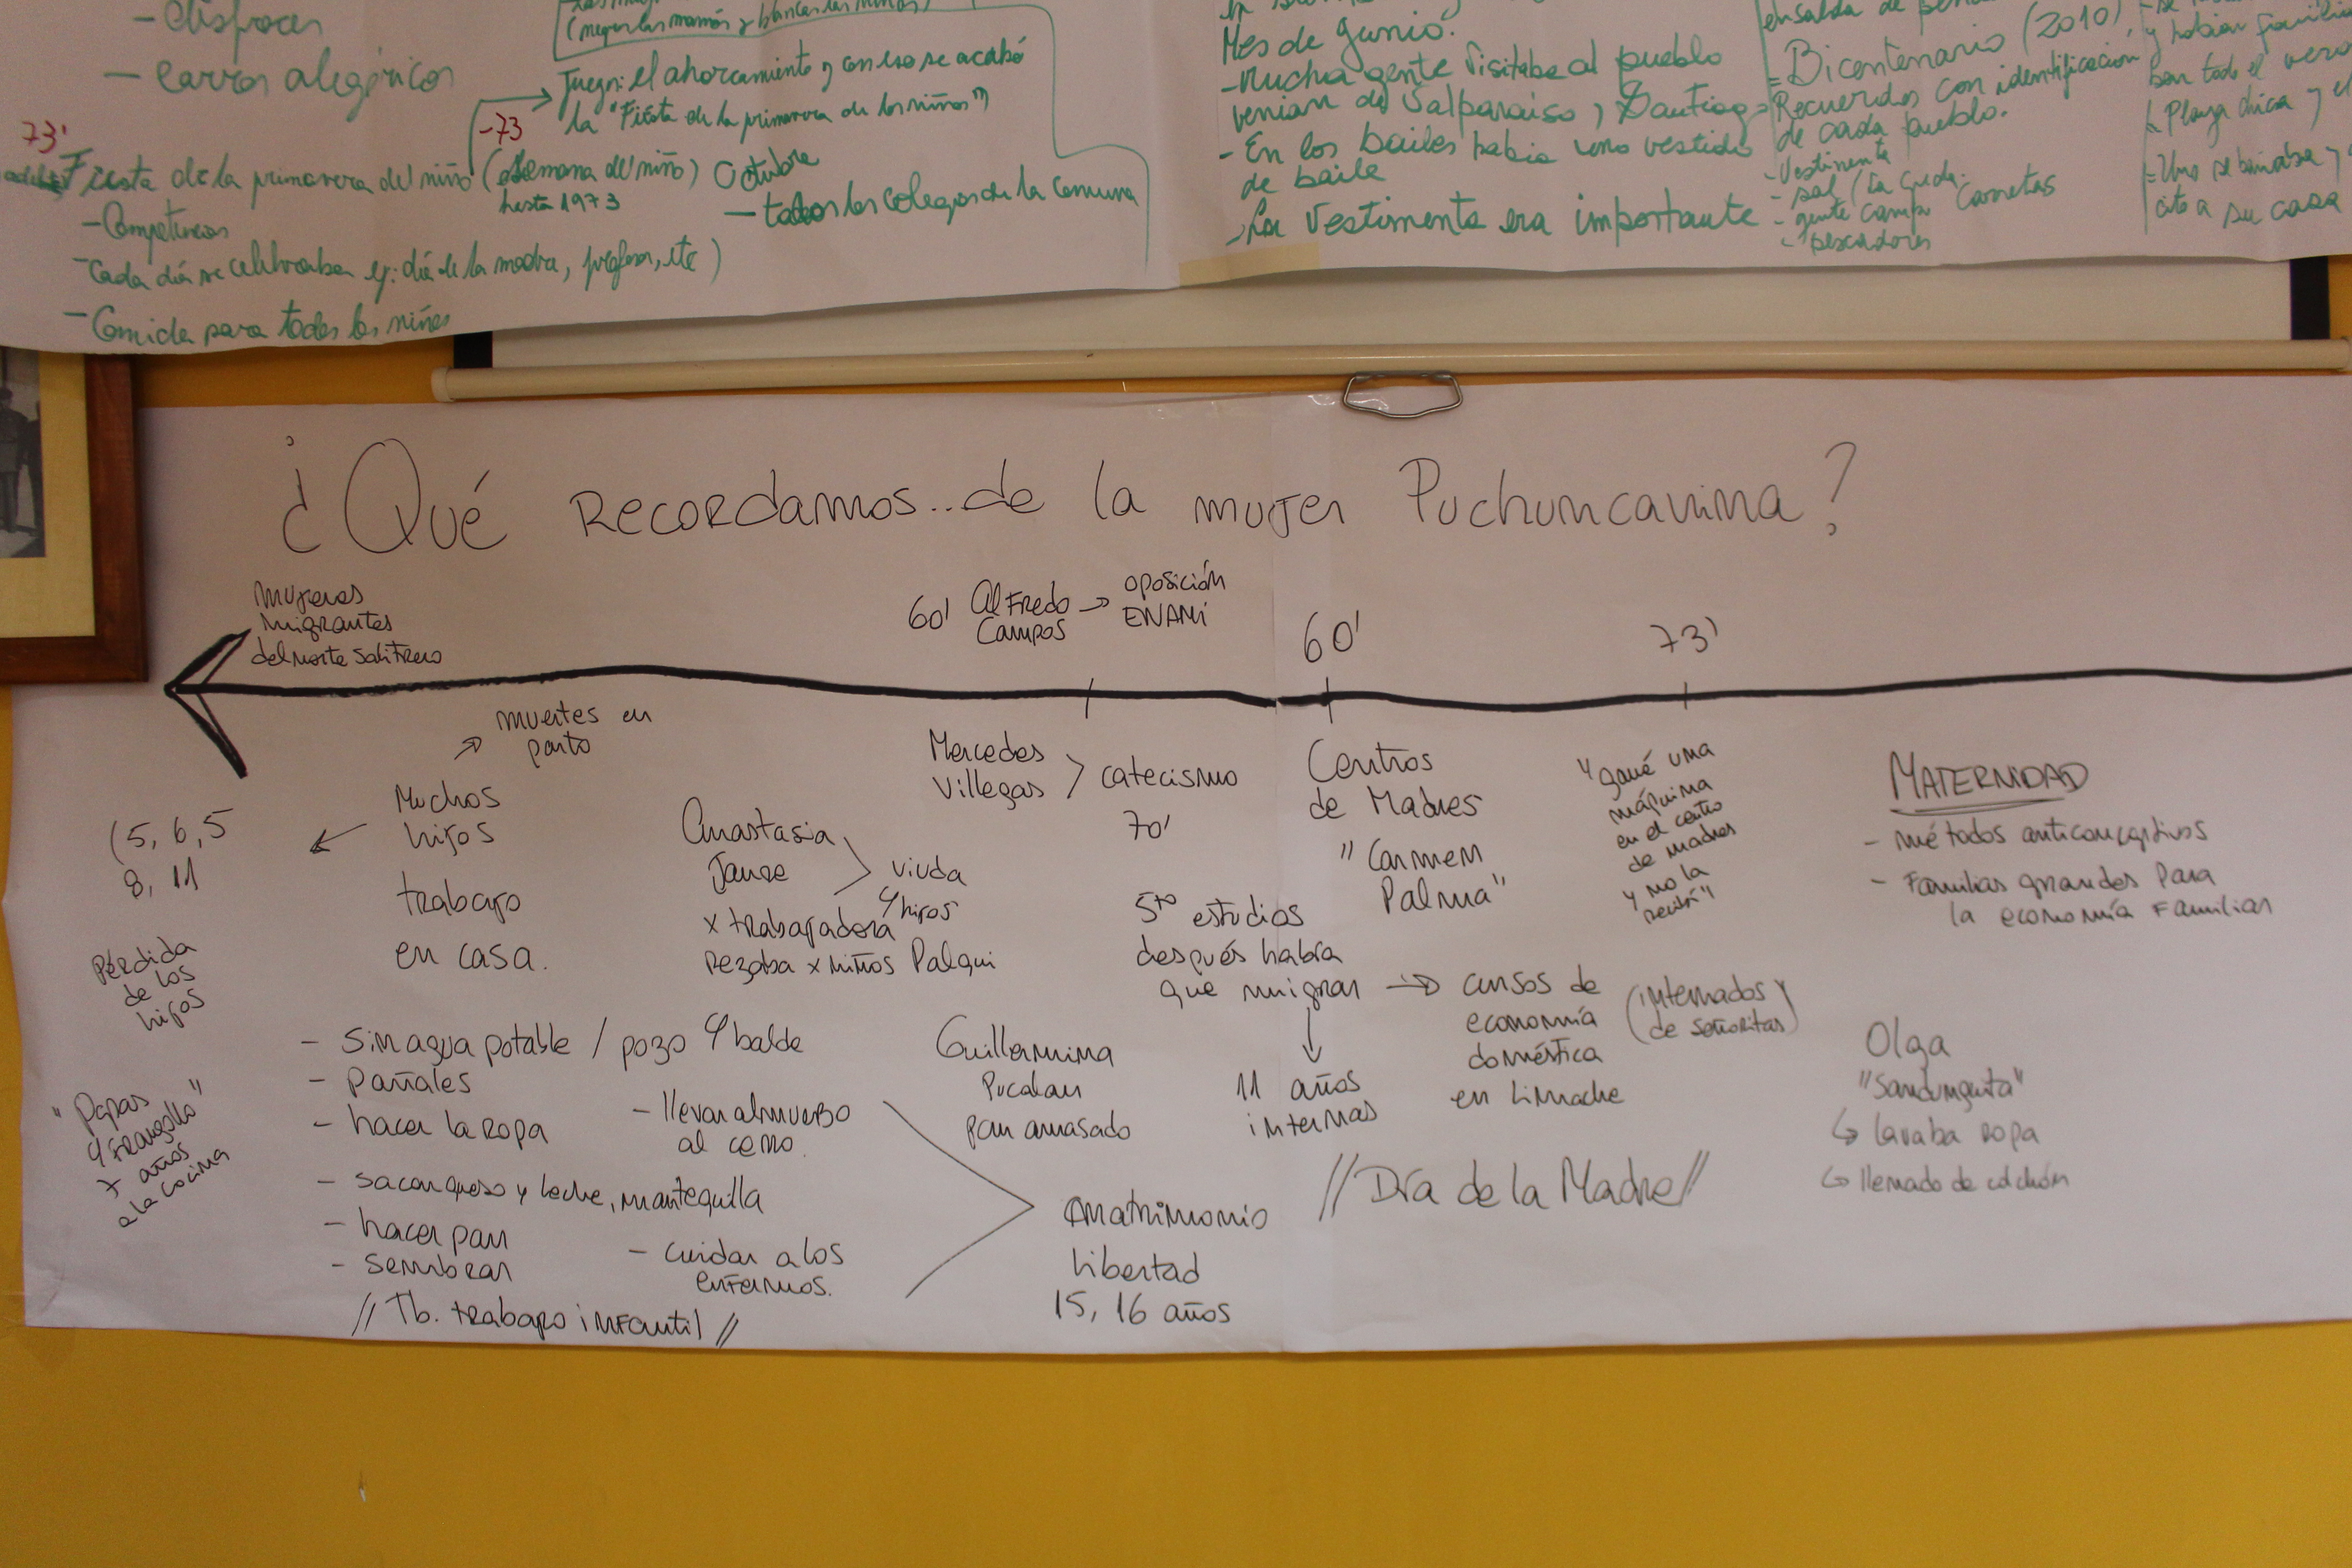 - disfraces
- carros alegóricos
(negros las mamás y blancas las niñas)
Juegos: el ahorcamiento y con eso se acabó
la "Fiesta de la primavera de los niños")
-73
73'
Fiesta de la primavera del niño (Semana del niño) Octubre
hasta 1973
- todos los colegios de la comuna
- Competencias
- Cada día se celebraba ej: día de la madre, profesor, etc)
- Comida para todos los niños
Mes de Junio.
- Mucha gente visitaba al pueblo
venian de Valparaíso, Santiago
- En los bailes habia uno vestido
de baile
- La Vestimenta era importante
Bicentenario (2010)
Recuerdos con identificación
de cada pueblo.
- Vestimenta
- sal (la
- gente campo Carretas
- pescadores
y habían familia
ban todo el vera
Plaza chica y el
- Uno se bañaba y
cito a su casa
¿Qué Recordamos...de la mujer Puchuncavina?
mujeres
migrantes
del norte salitrero
60' Alfredo
Campos → oposición
ENAMI
60'
73'
muertes en
parto
Muchos
hijos
(5, 6, 5
8, 11
trabajo
en casa.
Pérdida
de los
hijos
"Papas
y frangollo"
7 años
a la cocina
Anastasia
Janse
viuda
4 hijos
x trabajadora
rezaba x niños Palqui
Mercedes
Villegas > catecismo
70'
Centros
de Madres
"Carmen
Palma"
"gané una
máquina
en el centro
de madres
y no la
recibí"
MATERNIDAD
- métodos anticonceptivos
- Familias grandes para
la economía familiar
5to estudios
después había
que migrar → cursos de
economía
doméstica
en Limache
(internados
de señoritas)
11 años
internas
- sin agua potable / pozo y balde
- pañales
- hacer la ropa
- llevar almuerzo
al cerro.
- sacar queso y leche, mantequilla
- hacer pan
- sembrar
- cuidar a los
enfermos.
// Tb. trabajo infantil //
Guillermina
Pucalan
pan amasado
matrimonio
libertad
15, 16 años
// Día de la Madre //
Olga
"Sandunguita"
↳ lavaba ropa
↳ llenado de colchón